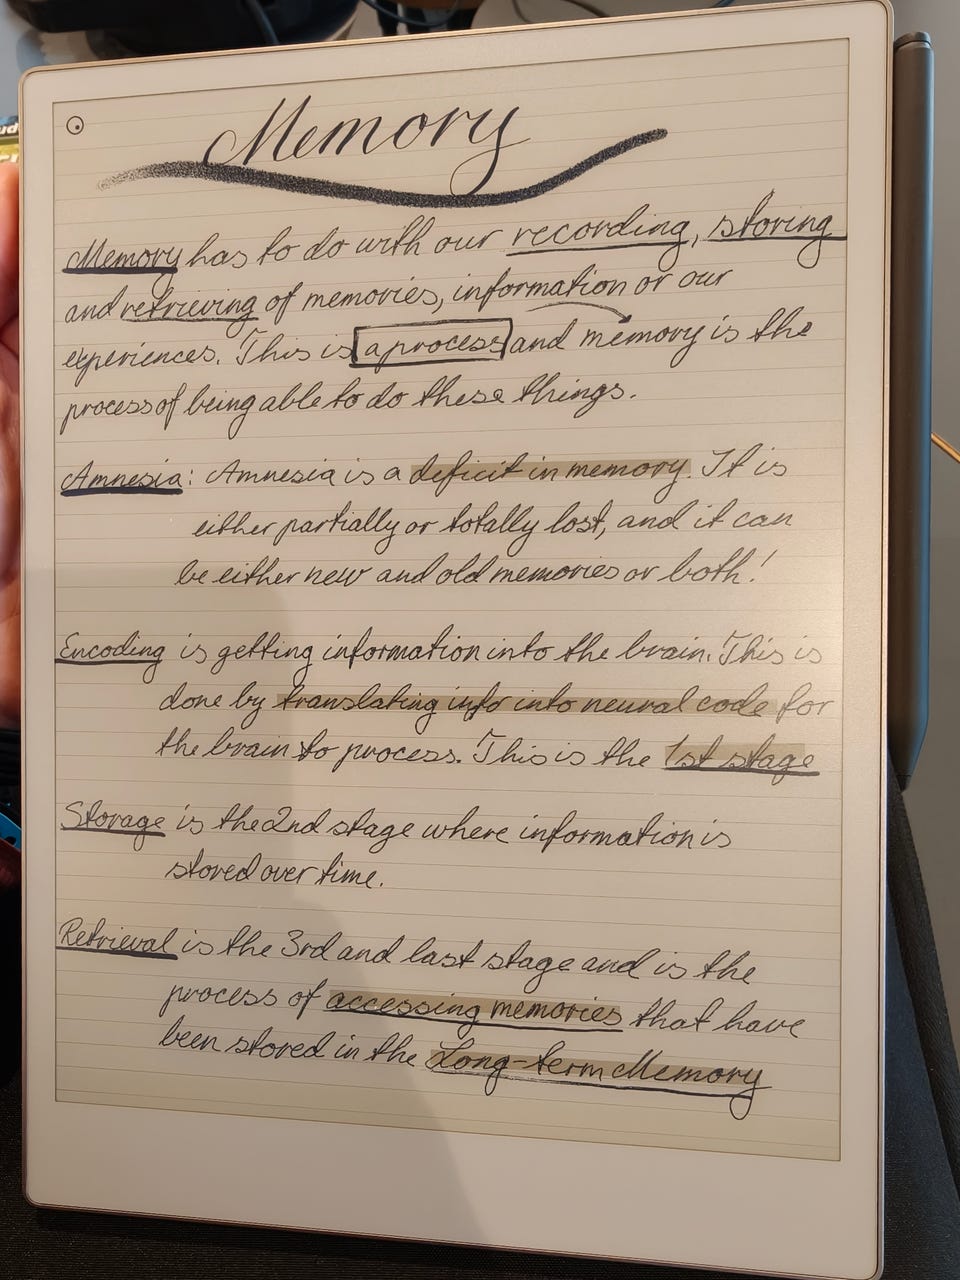 Memory
Memory has to do with our recording, storing
and retrieving of memories, information or our
experiences. This is a process and memory is the
process of being able to do these things.
Amnesia: Amnesia is a deficit in memory. It is
either partially or totally lost, and it can
be either new and old memories or both!
Encoding is getting information into the brain. This is
done by translating info into neural code for
the brain to process. This is the 1st stage
Storage is the 2nd stage where information is
stored over time.
Retrieval is the 3rd and last stage and is the
process of accessing memories that have
been stored in the Long-term Memory